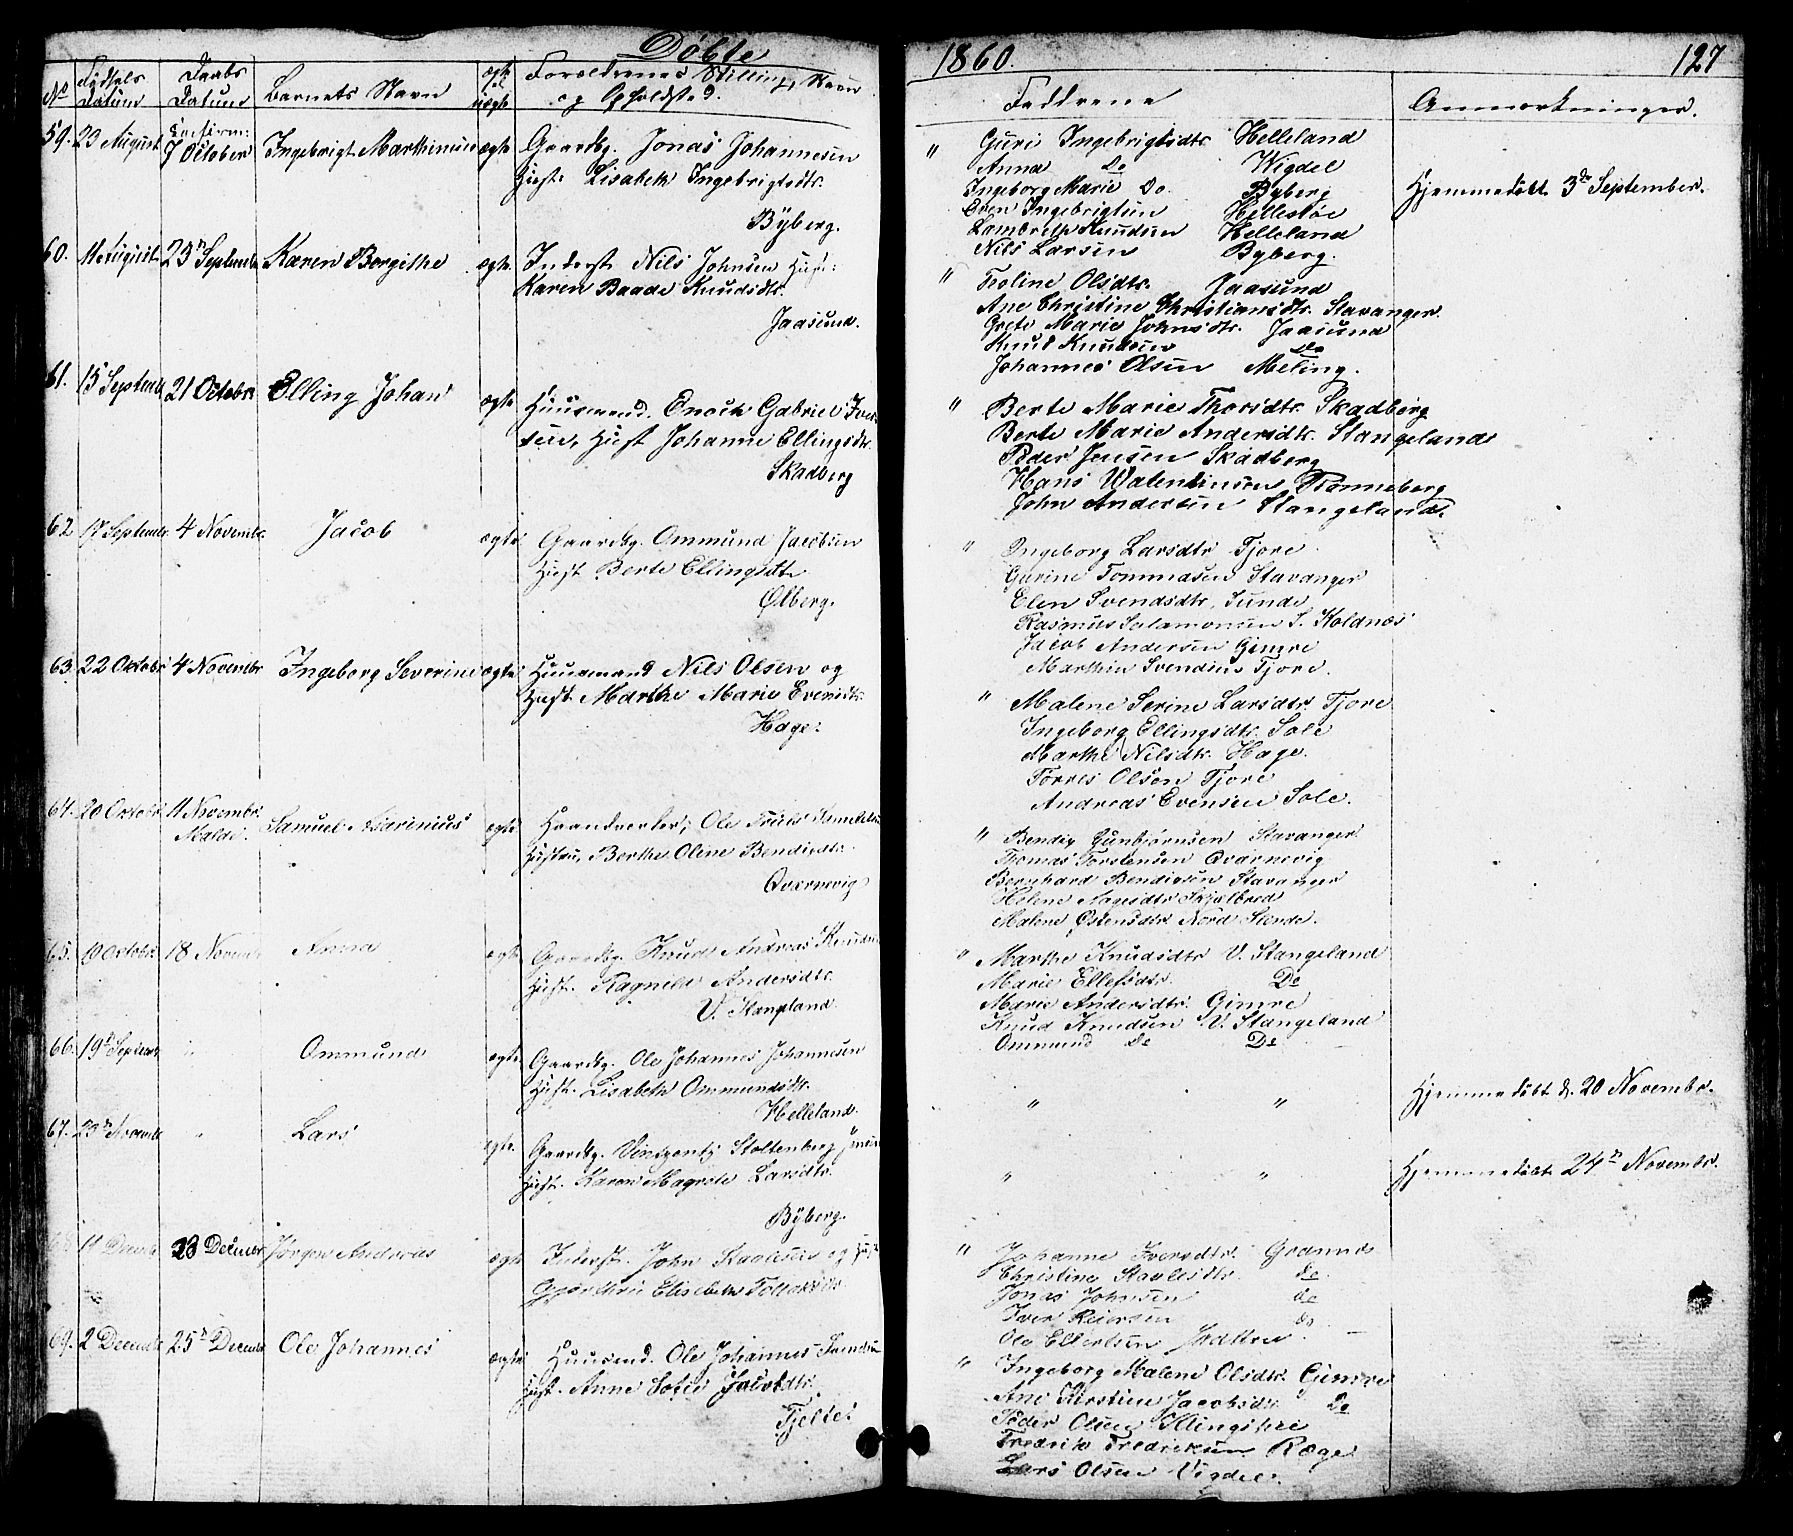 Døbte
1860.
127
No
Fødsels Datum
Daabs Datum
Barnets Navn
ægte uægte
Forældrenes Stilling, Navn
og Opholdsted.
Faddrene
Anmærkninger.
59. 23 August 7 October Ingebrigt Marthinus ægte Gaardbg. Jonas Johannesen
Hust. Lisabeth Ingebrigtsdtr.
Byberg.
" Guri Ingebrigtsdtr Helleland
Anna Do Wigdel
Ingeborg Marie Do. Byberg
Even Ingebrigtsen Hellestøe
Lambregt Knudsen Helleland
Nils Larsen Byberg.
Hjemmedøbt 3de September.
60. 11 August 23 Septembr Karen Borgithe ægte Inderst Nils Johnsen Hust:
Karen Baade Knudsdtr.
Jaasund.
" Toline Olsdtr. Jaasund
Ane Christine Christiansdtr. Stavanger
Grete Marie Johnsdtr. Jaasund
Knud Knudsen Do
Johannes Olsen Meling.
61. 15 Septembr 21 Octobr Elling Johan ægte Huusmand. Enoch Gabriel Iver-
sen, Hust Johanne Ellingsdtr.
Skadberg
" Berte Marie Thorsdtr. Skadberg
Berte Marie Andersdtr. Stangeland
Peder Jensen Skadberg
Hans Walentinsen Tranneberg
John Andersen Stangeland.
62 17 Septembr 4 Novembr. Jacob ægte Gaardbg. Ommund Jacobsen
Hust Berte Ellingsdtr
Ølberg.
" Ingeborg Larsdtr Tjore.
Gurine Tommasen Stavanger
Elen Svendsdtr. Sunde
Rasmus Salamonsen S. Koldnæs
Jacob Andersen Gimre
Marthin Svendsen Tjore.
63. 22 Oktobr 4 Novembr Ingeborg Severine ægte Huusmand Nils Olsen og
Hust. Marthe Marie Evensdtr.
Hage.
" Malene Serine Larsdtr. Tjore
Ingeborg Ellingsdtr. Sole
Marthe Nilsdtr. Hage.
Torres Olsen Tjore
Andreas Evensen Sole.
64. 20 Octobr 11 Novembr. Malde. Samuel ægte Haandverker, Ole Samuelsen
Hustru, Berthe Oline Bendixdtr.
Qværnevig
" Bendix Gunbjørnsen Stavanger
Thomas Torstensen Qværnevig
Bernhard Bendixen Stavanger
Helene Aagesdtr Skjelbred
Malene Østensdtr. Nord Sunde.
65. 10 Octobr. 18 Novembr Anna ægte Gaardbg. Knud Andreas Knudsen
Hust. Ragnilde Andersdtr.
V. Stangeland
" Marthe Knudsdtr V. Stangeland
Marie Ellefsdtr. Do
Marie Andersdtr. Gimre
Knud Knudsen V. Stangeland
Ommund do Do
66. 19 Septembr " Ommund ægte Gaardbg. Ole Johannes Johannesen
Hust. Lisabeth Ommundsdtr.
Helleland.
" "
Hjemmedøbt d. 20 Novembr.
67. 23 Novembr " Lars ægte Gaardbg. Vinszents Stoltenberg Jensen
Hust. Karen Magrete Larsdtr.
Byberg.
" "
Hjemmedøbt 24 Novembr.
68. 23 Decembr Jørgen Andreas ægte Inderst. John Staalesen og Hust
Elisabeth
" Johanne Iversdtr. Grannes
Christine Staalesdtr. do
Jonas Johnsen do
Iver Reiersen do
Ole Ellertsen
69. 2 Decembr 25 Decembr Ole Johannes ægte Huusmd. Ole Johannes Svendsen
Hust. Anne Sofie Jacobsdtr.
Tjelte.
" Ingeborg Malene Olsdtr. Gimre
Ane Kirstine Jacobsdtr. Do
Peder Olsen
Fredrik Fredriksen Ræge
Lars Olsen Vigdel.